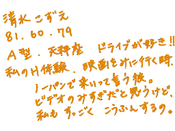 清水こずえ
81.60.79
A型.天秤座 ドライブが好き!!
私のH体験、映画をみに行く時、
ノーパンで来いって言う彼。
ビデオのみすぎだと思うけど、
私もすっごくこうふんするの。